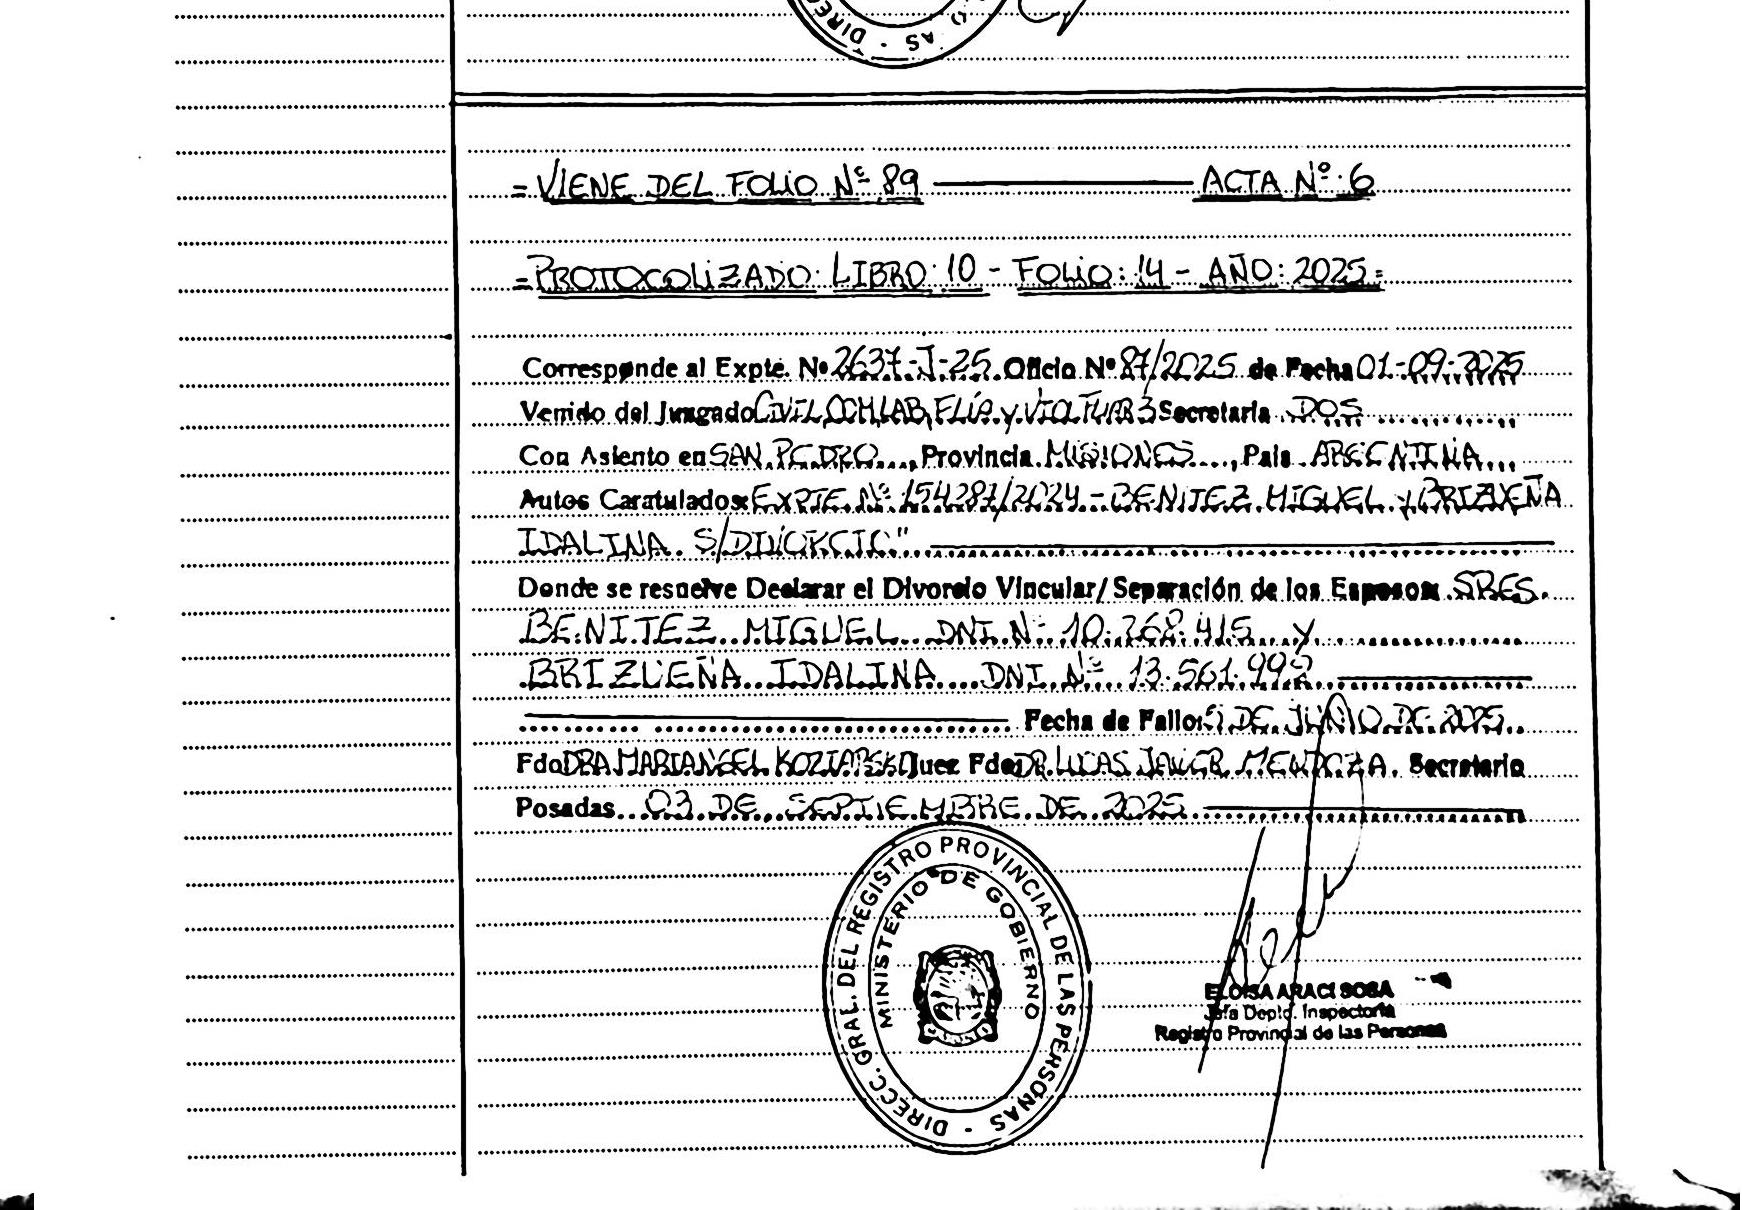 DIRECC
AS
= VIENE DEL FOLIO Nº 89 ACTA Nº 6
= PROTOCOLIZADO: LIBRO: 10 - FOLIO: 14 - AÑO: 2025 =
Corresponde al Expte. Nº 2637-J-25 Oficio Nº 87/2025 de Fecha 01-09-2025
Venido del Juzgado CIVIL, COM, LAB, FLIA y VIOL FLIAR 3 Secretaría DOS
Con Asiento en SAN PEDRO, Provincia MISIONES, País ARGENTINA
Autos Caratulados: EXPTE Nº 154287/2024 - BENITEZ MIGUEL y BRIZUEÑA
IDALINA S/DIVORCIO"
Donde se resuelve Declarar el Divorcio Vincular/ Separación de los Esposos: SRES.
BENITEZ MIGUEL DNI Nº 10.268.415 y
BRIZUEÑA IDALINA DNI Nº 13.561.992
Fecha de Fallo: DE JUNIO DE 2025
Fdo DRA MARIANGEL KOZIARSKI Juez Fdo: DR. LUCAS JAVIER MENDOZA Secretario
Posadas 03 DE SEPTIEMBRE DE 2025
DIRECC. GRAL. DEL REGISTRO PROVINCIAL DE LAS PERSONAS -
MINISTERIO DE GOBIERNO
ELOISA ARACI SOSA
Jefa Depto. Inspectoría
Registro Provincial de las Personas